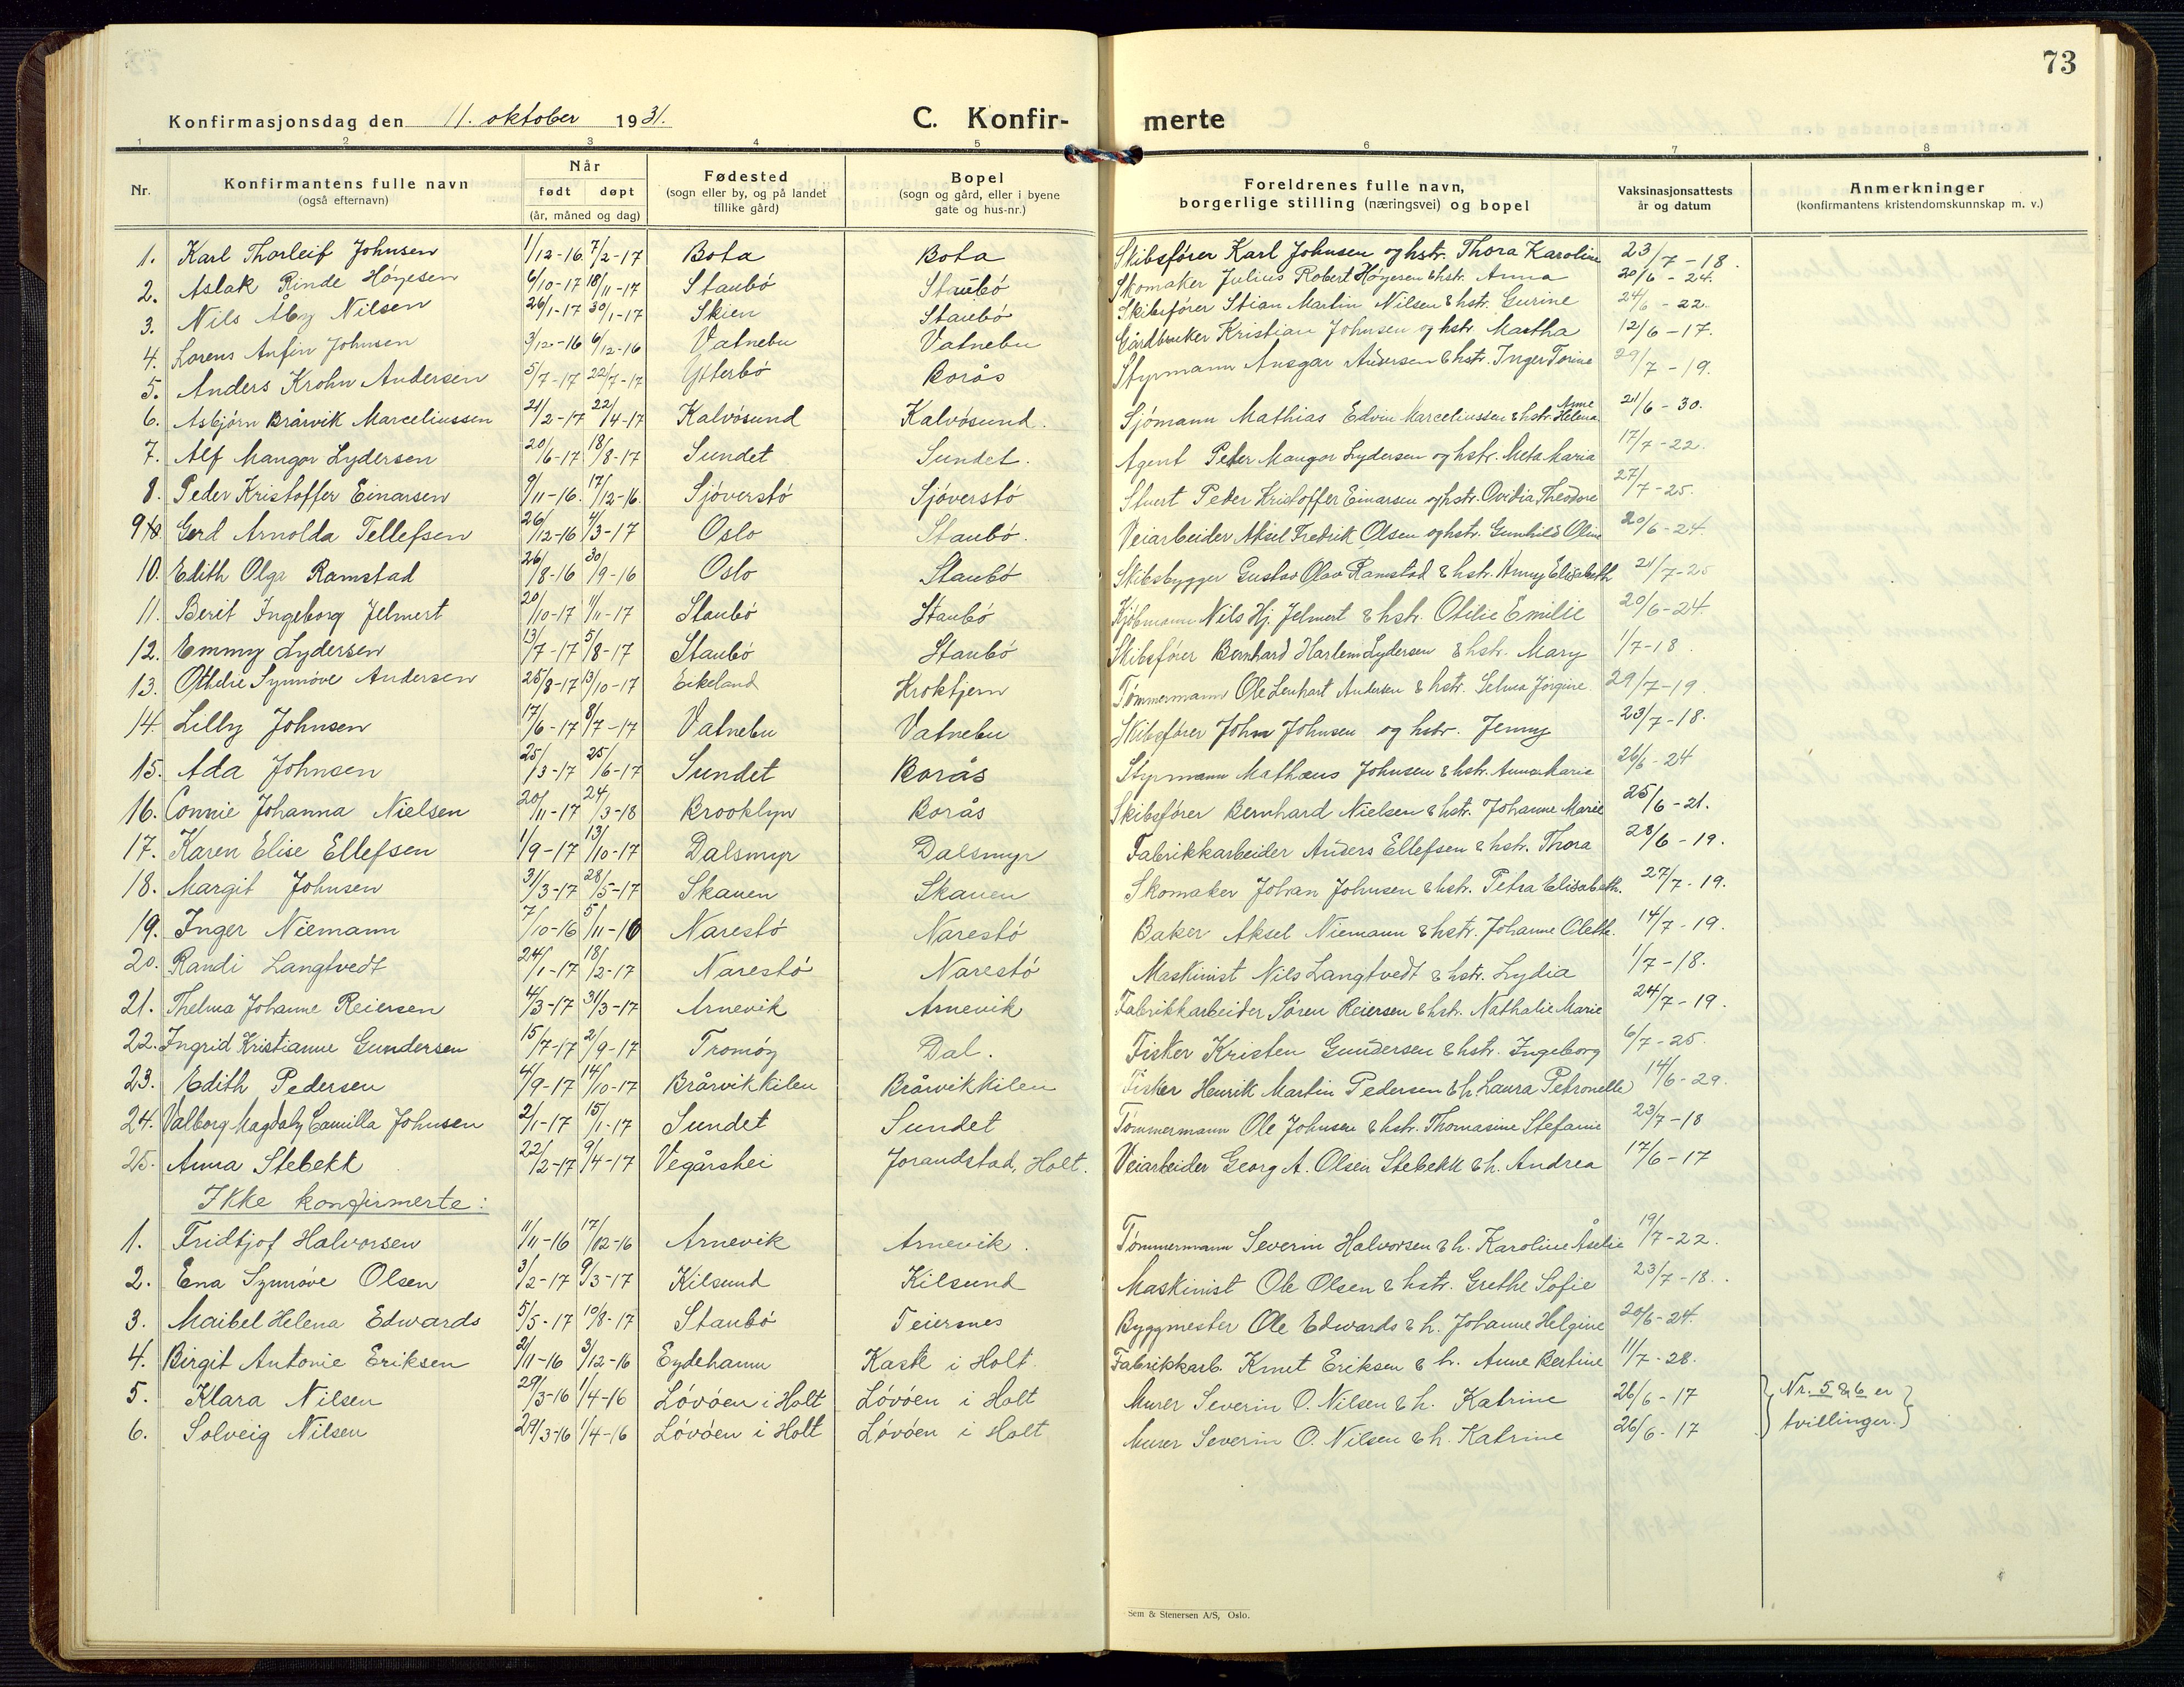 73
Konfirmasjonsdag den 11. oktober 1931.
C. Konfir- merte
1 2 3 4 5 6 7 8
Nr. | Konfirmantens fulle navn (også efternavn) | Når født døpt (år, måned og dag) | Fødested (sogn eller by, og på landet tillike gård) | Bopel (sogn og gård, eller i byene gate og hus-nr.) | Foreldrenes fulle navn, borgerlige stilling (næringsvei) og bopel | Vaksinasjonsattests år og datum | Anmerkninger (konfirmantens kristendomskunnskap m. v.)
1. Karl Thorleif Johnsen 1/12-16. 7/2-17 Bota Bota Skibsfører Karl Johnsen og hstr. Thora Karoline 23/7-18.
2. Aslak Rinde Høyesen 6/10-17 18/11-17 Staubø Staubø Skomaker Julius Robert Høyesen & hstr. Anna 20/6-24.
3. Nils Åby Nilsen 26/1-17 30/1-17 Skien Staubø Skibsfører Stian Martin Nilsen & hstr. Gurine 24/6-22.
4. Lorens Anfin Johnsen 3/12-16 6/12-16 Vatnebu Vatnebu Gårdbruker Kristian Johnsen og hstr. Martha 12/6-17.
5. Anders Krohn Andersen 5/7-17 22/7-17 Ytterbø Borås Styrmann Ansgar Andersen & hstr. Inger Torine 29/7-19.
6. Asbjørn Bråvik Marceliussen 21/2-17 22/4-17 Kalvøsund Kalvøsund. Sjømann Mathias Edvin Marceliussen & hstr. Anne Helena 21/6-30.
7. Alf Mangor Lydersen 20/6-17 18/8-17 Sundet Sundet. Agent Peter Mangor Lydersen og hstr. Meta Maria 17/7-22.
8. Peder Kristoffer Einarsen 9/11-16. 17/12-16. Sjøverstø Sjøverstø Stuert Peder Kristoffer Einarsen og hstr. Ovidia Theodore 27/7-25.
9. Gerd Arnolda Tellefsen 26/12-16 4/3-17 Oslo Staubø. Veiarbeider Aksel Fredrik Olsen og hstr. Gunhild Oline 20/6-24.
10. Edith Olga Ramstad 26/8-16 30/9-16 Oslo Staubø Skibsbygger Gustav Olav Ramstad & hstr. Anny Elisabeth 21/7-25
11. Berit Ingeborg Jelmert 20/10-17 11/11-17 Staubø Staubø Kjøbmann Nils Hj. Jelmert & hstr. Otilie Emilie 20/6-24.
12. Emmy Lydersen 13/7-17 5/8-17 Staubø Staubø Skibsfører Bernhard Harlem Lydersen & hstr. Mary 1/7-18.
13. Othelie Synnøve Andersen 25/8-17 13/10-17 Eikeland Kroktjern Tømmermann Ole Lenhart Andersen & hstr. Selma Jørgine 29/7-19.
14. Lilly Johnsen 17/6-17 8/7-17 Vatnebu Vatnebu Skibsfører John Johnsen og hstr. Jenny 23/7-18.
15. Ada Johnsen 25/3-17 25/6-17 Sundet Borås Styrmann Mathæus Johnsen & hstr. Anna Marie 26/6-24
16. Connie Johanna Nielsen 20/11-17 24/3-18 Brooklyn Borås Skibsfører Bernhard Nielsen & hstr. Johanne Marie 25/6-21.
17. Karen Elise Ellefsen 1/9-17 13/10-17 Dalsmyr Dalsmyr Fabrikkarbeider Anders Ellefsen & hstr. Thora 28/6-19.
18. Margit Johnsen 31/3-17 28/5-17 Skauen Skauen Skomaker Johan Johnsen & hstr. Petra Elisabeth. 27/7-19.
19. Inger Niemann 7/10-16 5/11-16 Narestø Narestø Baker Aksel Niemann & hstr. Johanne Olette. 14/7-19.
20. Randi Langtvedt 24/1-17 18/2-17 Narestø Narestø Maskinist Nils Langtvedt & hstr. Lydia 1/7-18.
21. Thelma Johanne Reiersen 4/3-17 31/3-17 Arnevik Arnevik Fabrikkarbeider Søren Reiersen & hstr. Nathalie Marie 24/7-19.
22. Ingrid Kristianne Gundersen 15/7-17 2/9-17 Tromøy Dal. Fisker Kristen Gundersen & hstr. Ingeborg 6/7-25.
23. Edith Pedersen 4/9-17 14/10-17 Bråvikkilen Bråvikkilen Fisker Henrik Martin Pedersen & h. Laura Petronelle 14/6-29.
24. Valborg Magdaly Camilla Johnsen 2/1-17 15/1-17 Sundet Sundet Tømmermann Ole Johnsen & hstr. Thomasine Stefanie 23/7-18
25. Anna Stebekk 22/2-17 9/4-17 Vegårshei Jorandstad, Holt. Veiarbeider Georg A. Olsen Stebekk & h. Andrea 17/6-17
Ikke konfirmerte:
1. Fridtjof Halvorsen 11/11-16 17/12-16 Arnevik Arnevik. Tømmermann Severin Halvorsen & h. Karoline Åselie 19/7-22.
2. Ena Synnøve Olsen 3/2-17 9/3-17 Kilsund Kilsund Maskinist Ole Olsen & hstr. Grethe Sofie 23/7-18.
3. Maibel Helena Edwards 5/5-17 10/8-17 Staubø Teiersnes Byggmester Ole Edwards & h. Johanne Helgine 20/6-24.
4. Birgit Antonie Eriksen 21/11-16 3/12-16 Eydehamn Kastet i Holt. Fabrikkarb. Knut Eriksen & h. Anne Bertine 11/7-28.
5. Klara Nilsen 29/3-16 1/4-16 Løvøen i Holt Løvøen i Holt Murer Severin O. Nilsen & h. Katrine 26/6-17 Nr. 5 & 6 er
6. Solveig Nilsen 29/3-16 1/4-16 Løvøen i Holt Løvøen i Holt Murer Severin O. Nilsen & h. Katrine 26/6-17 tvillinger.
Sem & Stenersen A/S, Oslo.